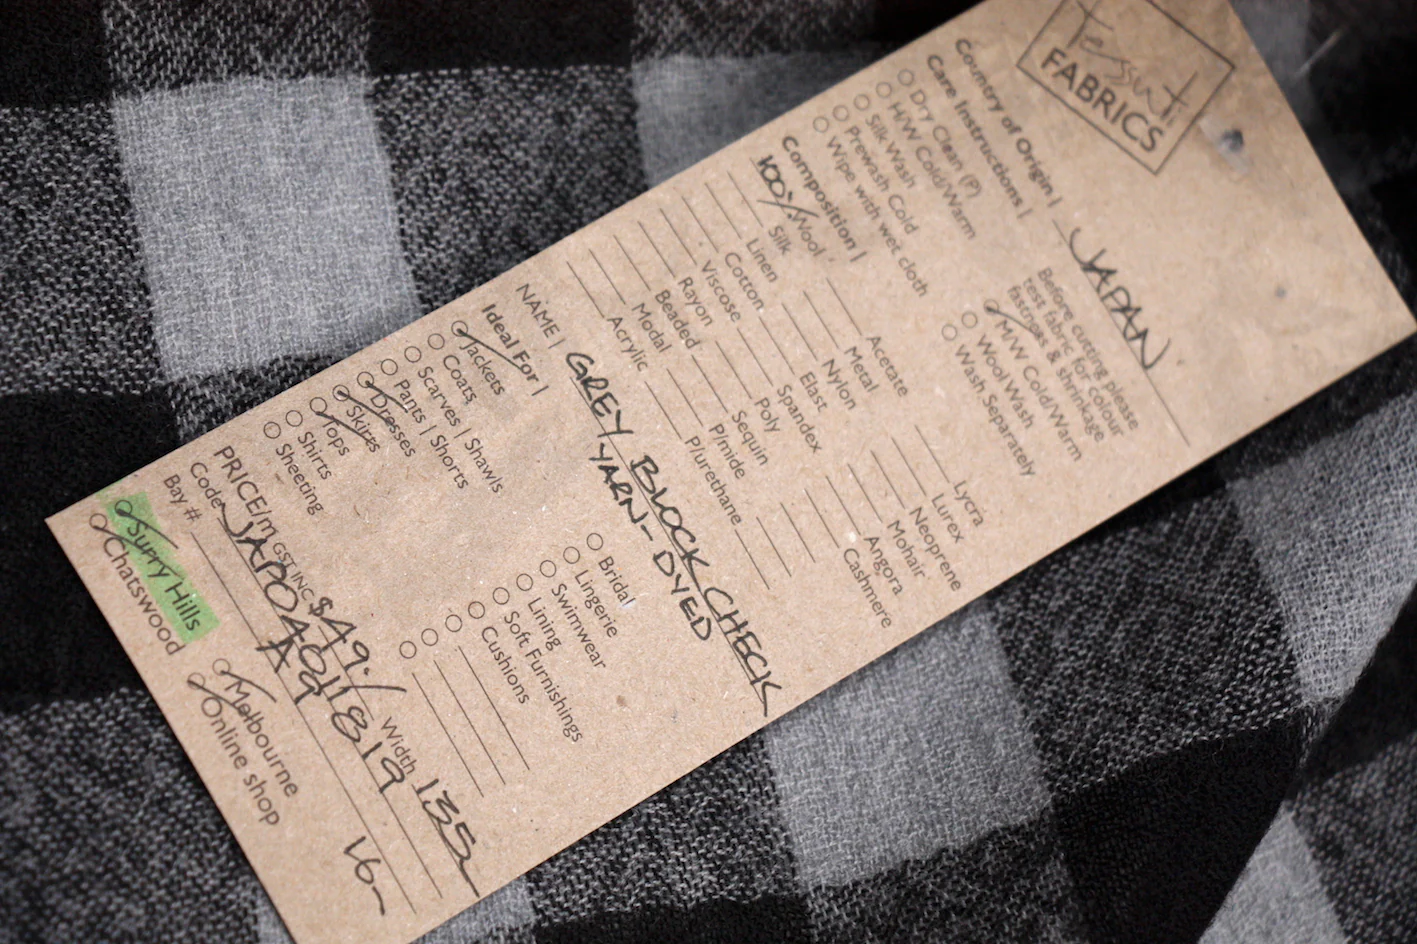 tessuti
FABRICS
Country of Origin | JAPAN
Care Instructions |
Dry Clean (P)
H/W Cold/Warm
Silk Wash
Prewash Cold
Wipe with wet cloth
Before cutting please
test fabric for colour
fastness & shrinkage
M/W Cold/Warm
Wool Wash
Wash Separately
Composition |
100% Wool
Silk
Linen
Cotton
Viscose
Rayon
Beaded
Modal
Acrylic
Acetate
Metal
Nylon
Elast
Spandex
Poly
Sequin
P/mide
P/urethane
Lycra
Lurex
Neoprene
Mohair
Angora
Cashmere
NAME | GREY BLOCK CHECK
YARN-DYED
Ideal For |
Jackets
Coats
Scarves | Shawls
Pants | Shorts
Dresses
Skirts
Tops
Shirts
Sheeting
Bridal
Lingerie
Swimwear
Lining
Soft Furnishings
Cushions
PRICE/m GST INC $49./ Width 135
Code JAP04011819
Bay # A9
Surry Hills
Chatswood
Melbourne
Online shop